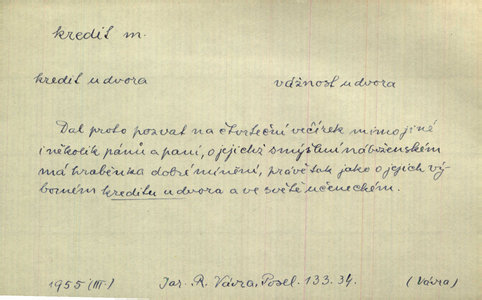 kredit m.
kredit u dvora vážnost u dvora
Dal proto pozvat na čtvrteční večírek mimo jiné
i několik pánů a paní, o jejichž smýšlení náboženském
má hraběnka dobré mínění, právě tak jako o jejich vý-
borném kreditu u dvora a ve světě učeneckém.
1955 (III) Jar. R. Vávra, Posel. 133. 34. (Vávra)